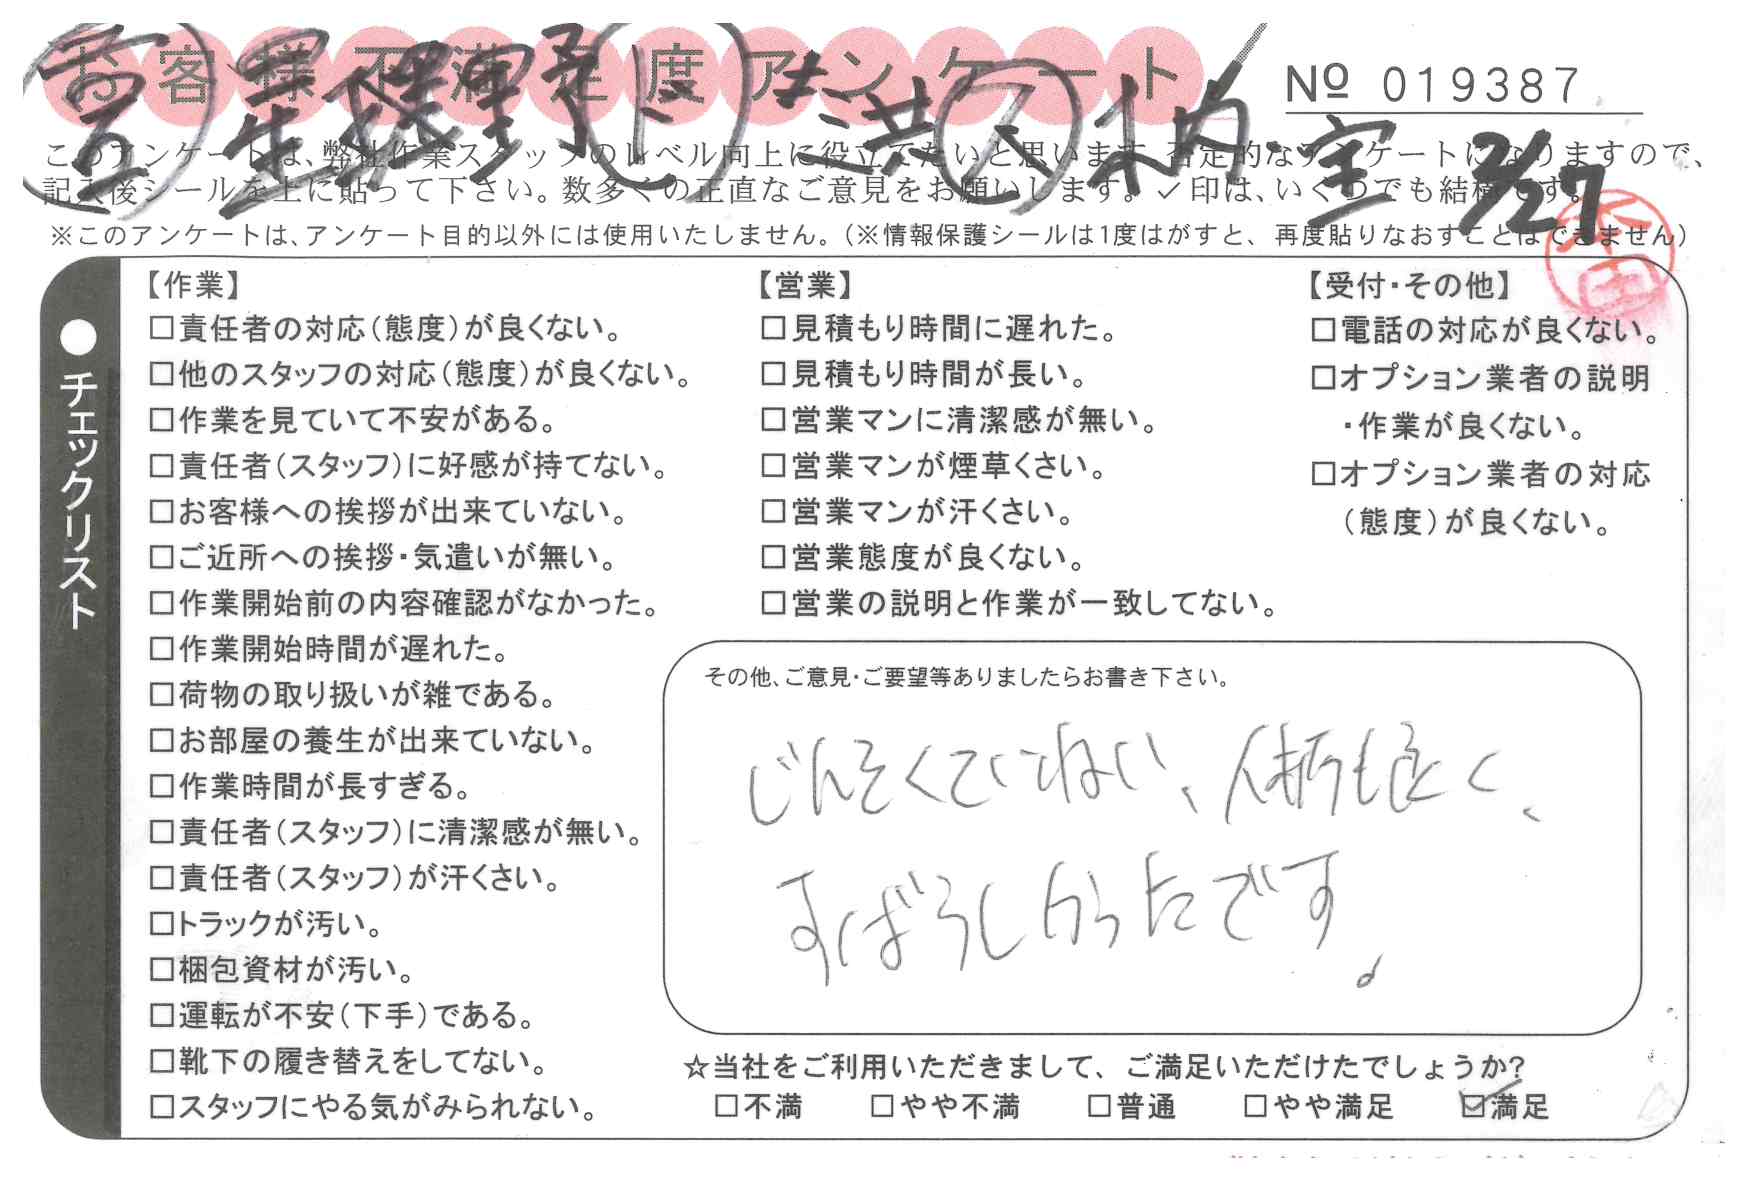 お客様不満足度アンケート
№ 019387
このアンケートは、弊社作業スタッフのレベル向上に役立てたいと思います。否定的なアンケートになりますので、
記入後シールを上に貼って下さい。数多くの正直なご意見をお願いします。✓印は、いくつでも結構です。
3/27
※このアンケートは、アンケート目的以外には使用いたしません。(※情報保護シールは1度はがすと、再度貼りなおすことはできません)
●チェックリスト
【作業】
□責任者の対応(態度)が良くない。
□他のスタッフの対応(態度)が良くない。
□作業を見ていて不安がある。
□責任者(スタッフ)に好感が持てない。
□お客様への挨拶が出来ていない。
□ご近所への挨拶・気遣いが無い。
□作業開始前の内容確認がなかった。
□作業開始時間が遅れた。
□荷物の取り扱いが雑である。
□お部屋の養生が出来ていない。
□作業時間が長すぎる。
□責任者(スタッフ)に清潔感が無い。
□責任者(スタッフ)が汗くさい。
□トラックが汚い。
□梱包資材が汚い。
□運転が不安(下手)である。
□靴下の履き替えをしてない。
□スタッフにやる気がみられない。
【営業】
□見積もり時間に遅れた。
□見積もり時間が長い。
□営業マンに清潔感が無い。
□営業マンが煙草くさい。
□営業マンが汗くさい。
□営業態度が良くない。
□営業の説明と作業が一致してない。
【受付・その他】
□電話の対応が良くない。
□オプション業者の説明
・作業が良くない。
□オプション業者の対応
(態度)が良くない。
その他、ご意見・ご要望等ありましたらお書き下さい。
じんそくていねい、人柄も良く、
すばらしかったです。
☆当社をご利用いただきまして、ご満足いただけたでしょうか?
□不満 □やや不満 □普通 □やや満足 ☑満足